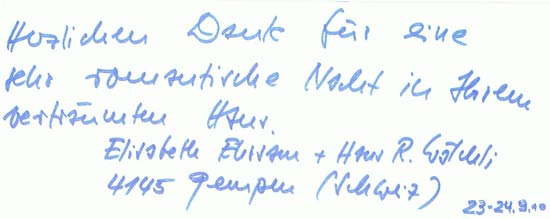 Herzlichen Dank für eine
sehr romantische Nacht in Ihrem
verträumten Haus.
Elisabeth + Hans R.
4145 Gempen (Schweiz)
23-24.9.10